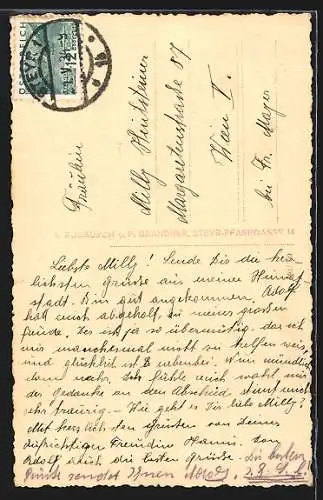 ÖSTERREICH
12
STEYR 1
Fräulein
Milly Heilsteiner
Margaretenstrasse 87
Wien V.
bei Fr. Mayer
v. P. BRANDNER, STEYR-PFARRGASSE 14
Liebste Milly! Sende Dir die herz-
lichsten Grüsse aus meiner Heimat-
stadt. Bin gut angekommen. Adolf
hat mich abgeholt, zu meiner grossen
Freude. Der ist ja so übermütig, das ich
mir manchesmal nicht zu helfen weis,
und glücklich ist
dann mehr. Ich fühle mich wohl, nur
der Gedanke an den Abschied stimmt mich
sehr traurig. – Wie geht es Dir liebe Milly?
Mit herzlichsten Grüssen von Deiner
aufrichtigen Freundin Hanni. Von
Adolf auch die besten Grüsse. – Die besten
Grüsse sendet Ihnen Adolf